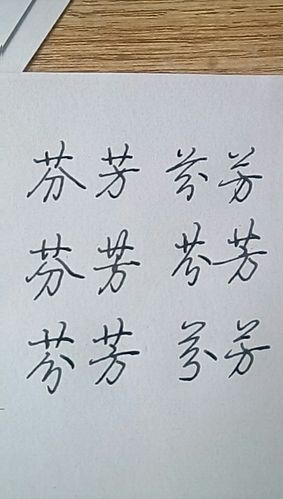 芬芳 芬芳
芬芳 芬芳
芬芳 芬芳